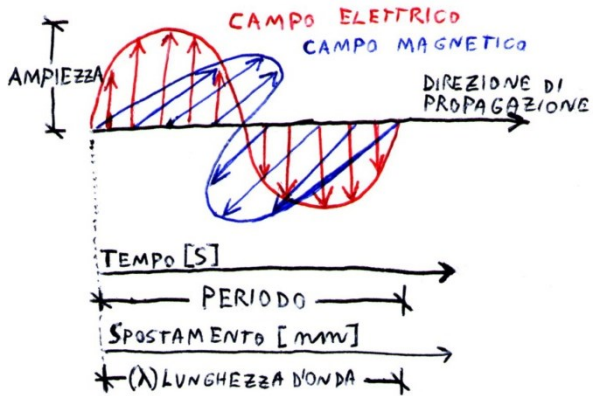 CAMPO ELETTRICO
CAMPO MAGNETICO
AMPIEZZA
DIREZIONE DI
PROPAGAZIONE
TEMPO [S]
PERIODO
SPOSTAMENTO [nm]
(λ) LUNGHEZZA D'ONDA